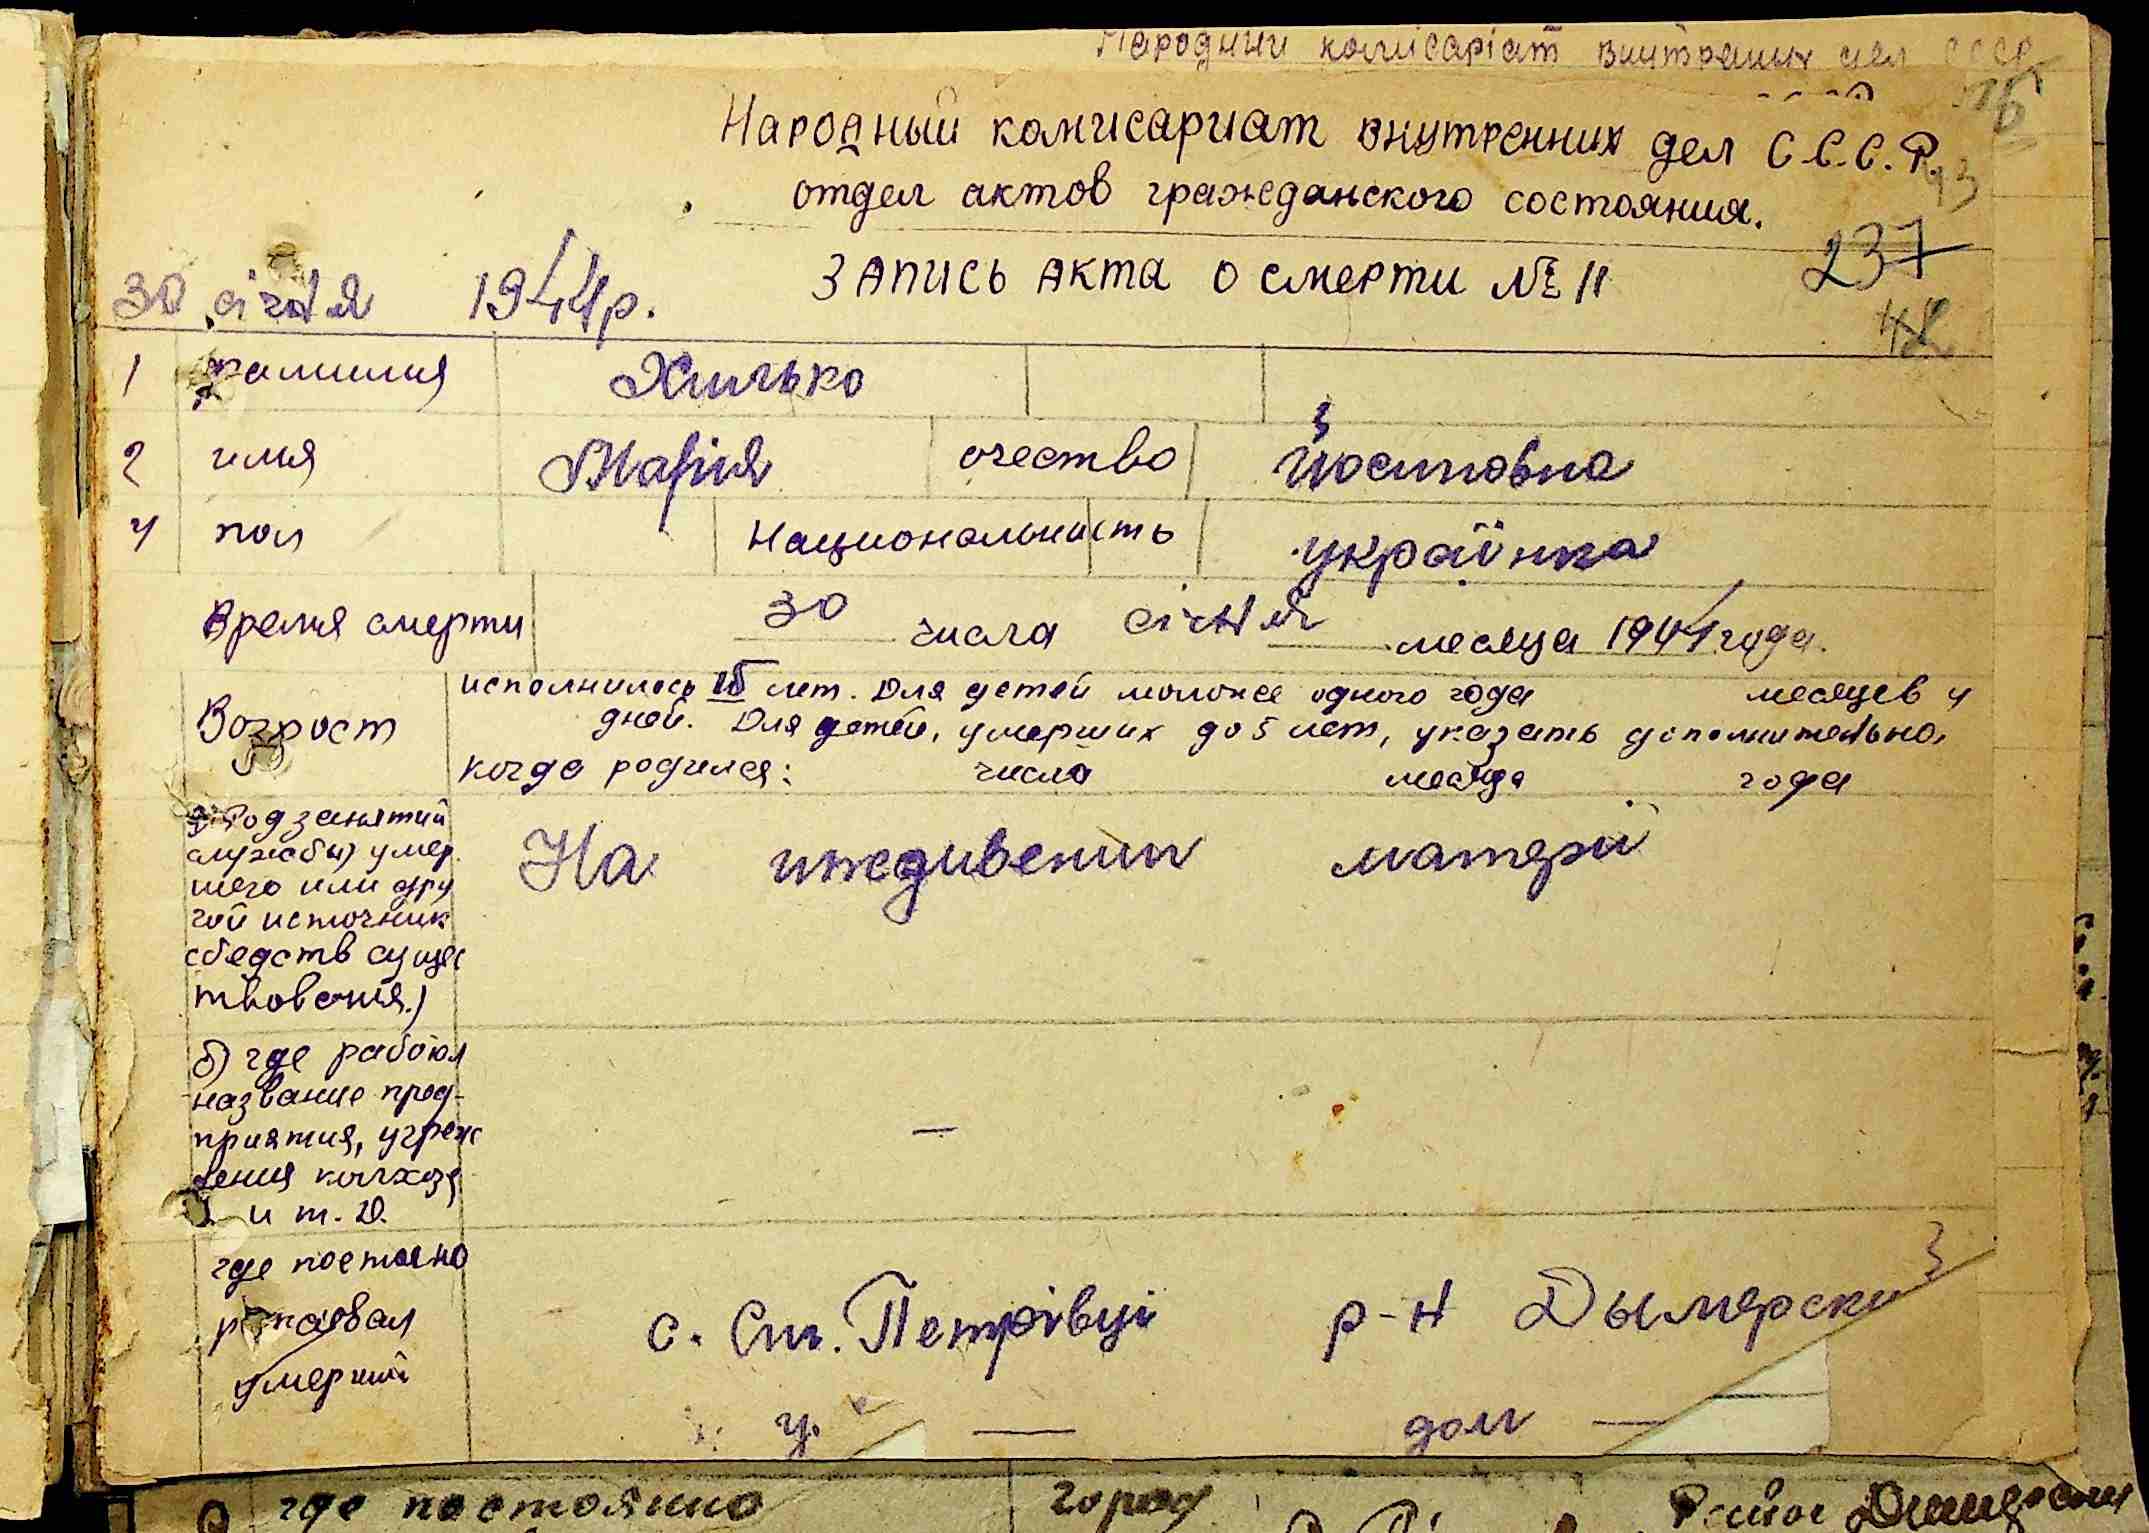 Народний комісаріат внутрених дел СССР
Народный комисариат внутренних дел С.С.С.Р.
отдел актов гражданского состояния.
237
30 січня 1944р. Запись акта о смерти № 11
42
1 фамилия Хилько
2 имя Марія очество Йосиповна
4 пол Национальность українка
Время смерти 30 числа січня месяца 1944 года.
Возрост исполнилось лет. Для детей моложе одного года месяцев и
дней. Для детей, умерших до 5 лет, указать дополнительно,
когда родился: числа месяца года
Род занятий
службы умер
шего или дру
гой источник
средств сущес
твования.)
На иждивении матери
б) где работал
название пред-
приятия, учреж
дения колхоза
и т. д.
—
где постояно
проживал
умерший
с. Ст. Петрівці р-н Дымерский
у. — дом —
где постоянно город Район Дымерский